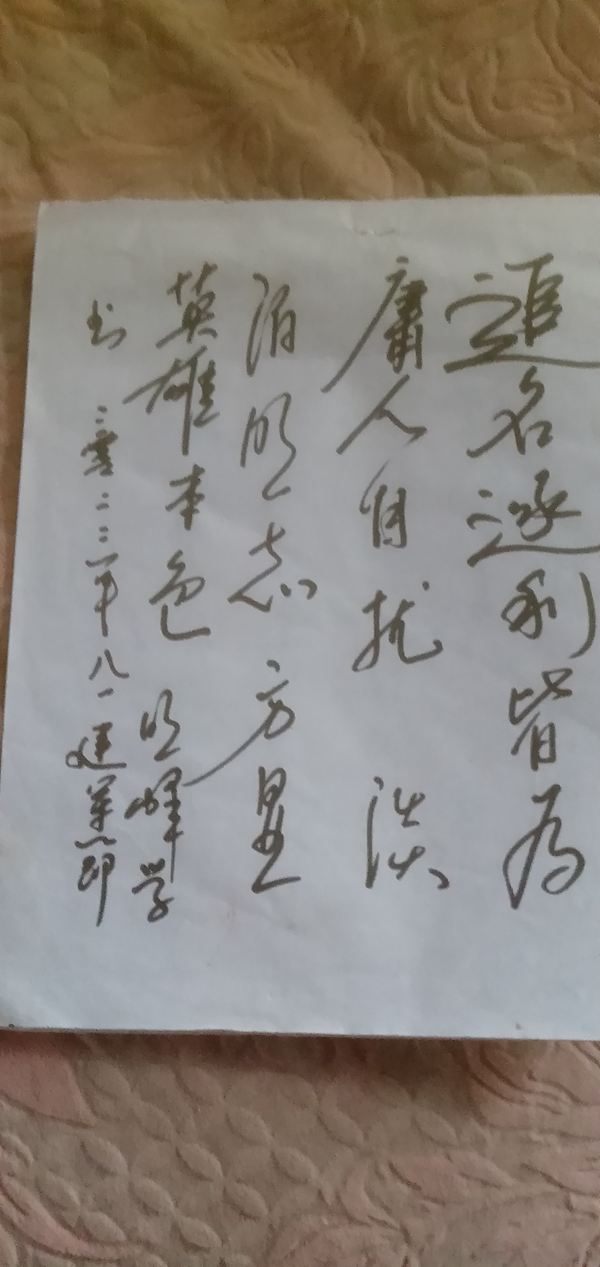 追名逐利皆为
庸人自扰 淡
泊明志方显
英雄本色 明峰学
书 二零二二年八一建军节